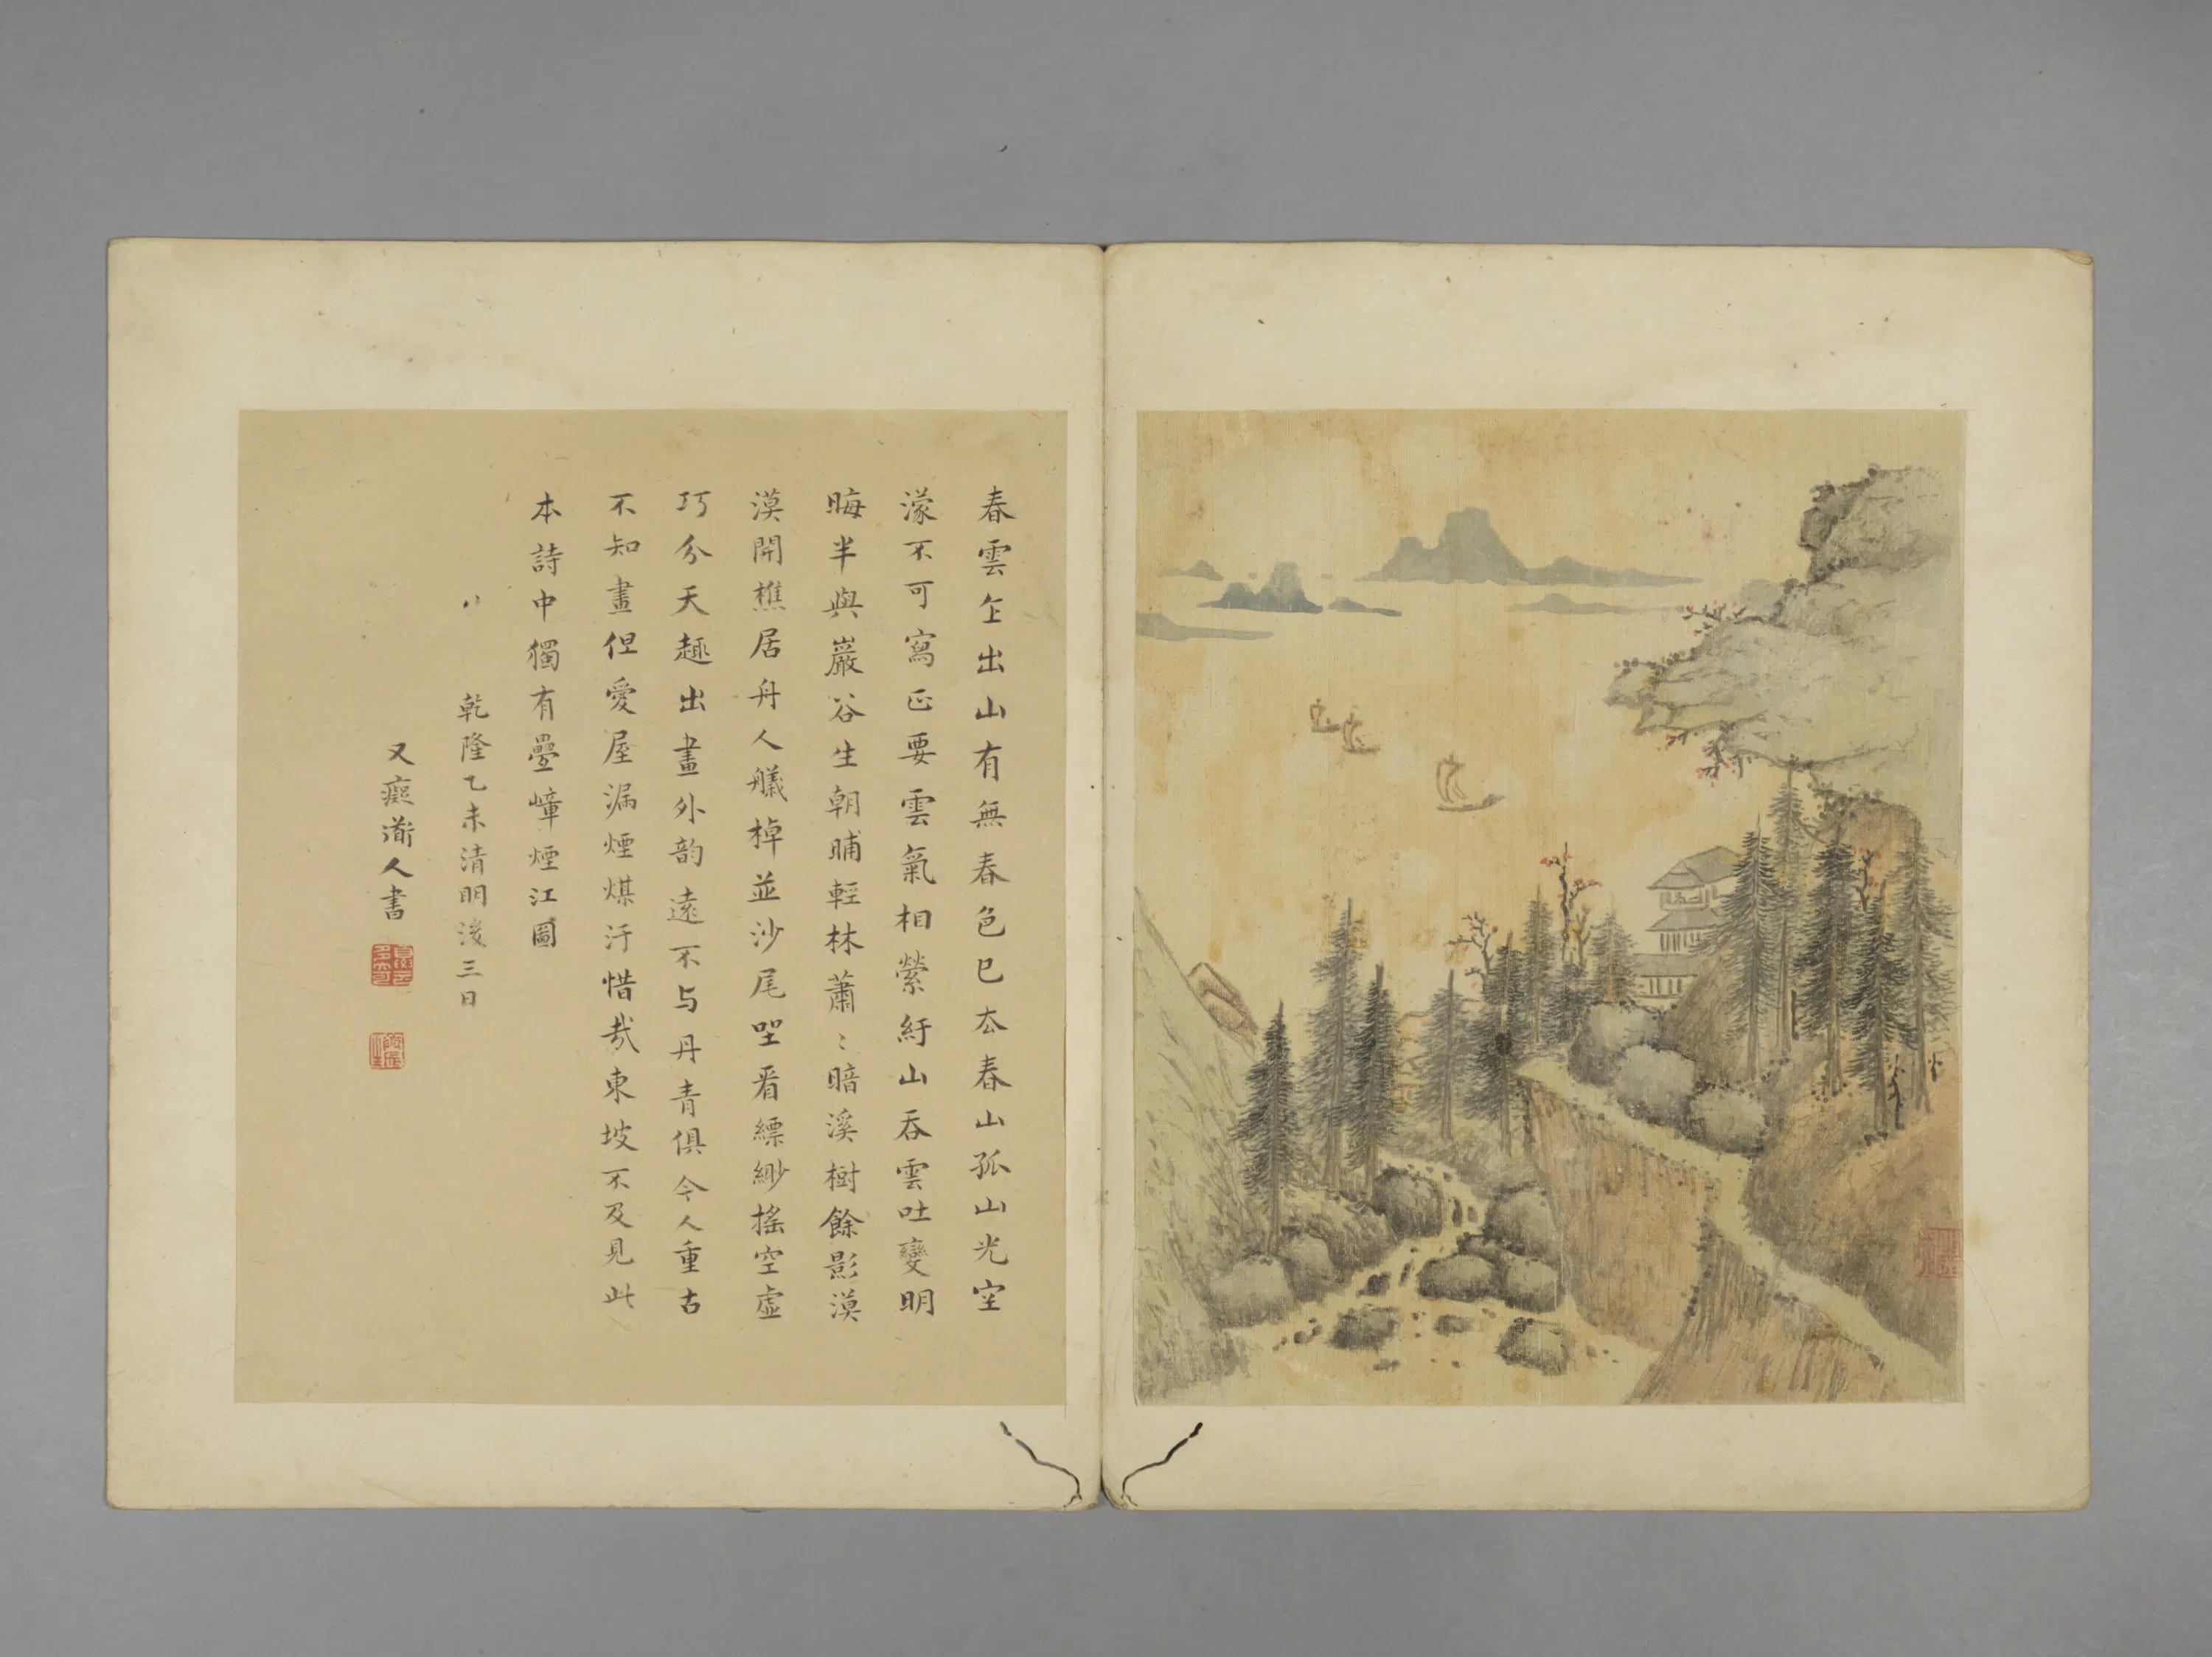 春雲乍出山有無春色已在春山孤山光空
濛不可寫正要雲氣相縈紆山吞雲吐變明
晦半與巖谷生朝晡輕林蕭〻暗溪樹餘影漠
漠開樵居舟人艤棹並沙尾坐看縹緲搖空虛
巧分天趣出畫外韵遠不与丹青俱今人重古
不知畫但愛屋漏煙煤汙惜哉東坡不及見此
本詩中獨有疊嶂煙江圖
乾隆乙未清明後三日
又癡道人書